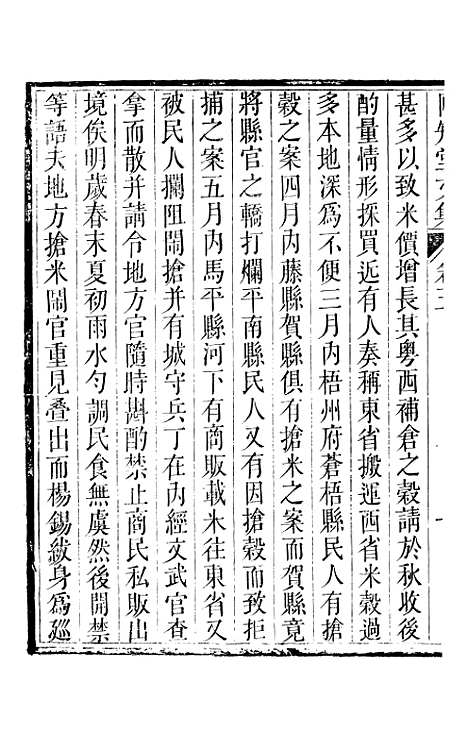 甚多以致米價增長其粵西補倉之穀請於秋收後
酌量情形採買近有人奏稱東省搬運西省米穀過
多本地深爲不便三月內梧州府蒼梧縣民人有搶
穀之案四月內藤縣賀縣俱有搶米之案而賀縣竟
將縣官之轎打爛平南縣民人又有因搶穀而致拒
捕之案五月內馬平縣河下有商販載米往東省又
被民人攔阻鬧搶并有城守兵丁在內經文武官查
拿而散并請令地方官隨時斟酌禁止商民私販出
境俟明歲春末夏初雨水勻調民食無虞然後開禁
等語夫地方搶米鬧官重見叠出而楊錫紱身爲廵